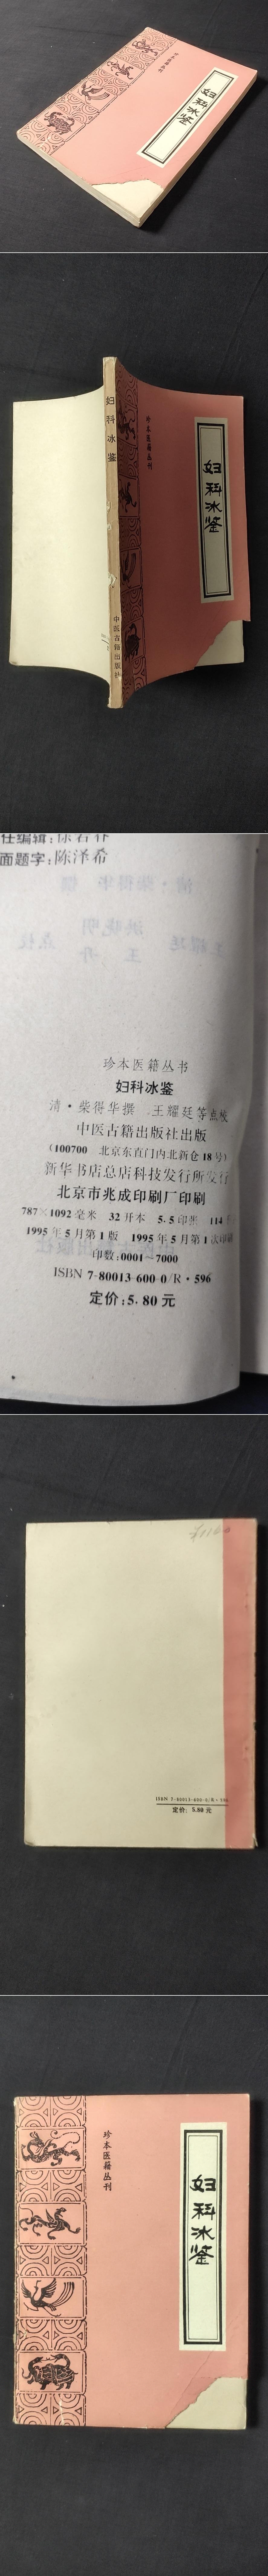 妇科冰鉴
珍本医籍丛刊
妇科冰鉴
中医古籍出版社
珍本医籍丛刊
妇科冰鉴
面题字:陈泽希
珍本医籍丛书
妇科冰鉴
清·柴得华撰 王耀廷等点校
中医古籍出版社出版
(100700 北京东直门内北新仓18号)
新华书店总店科技发行所发行
北京市兆成印刷厂印刷
787×1092毫米 32开本 5.5印张 114千
1995年5月第1版 1995年5月第1次印刷
印数:0001~7000
ISBN 7-80013-600-0/R·596
定价:5.80元
ISBN 7-80013-600-0/R·596
定价: 5.80元
珍本医籍丛刊
妇科冰鉴